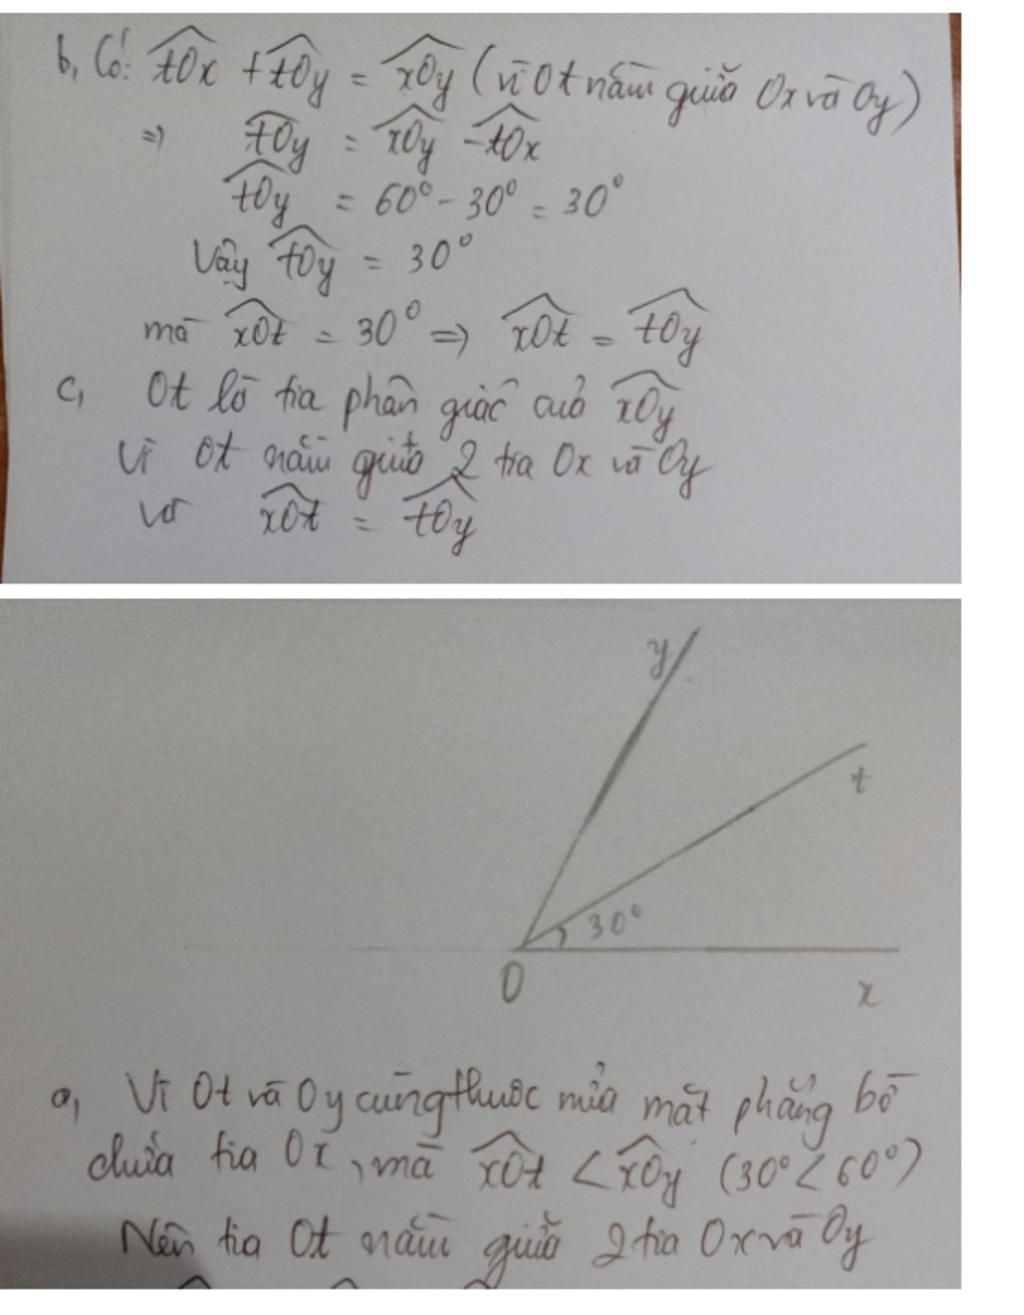 b, Có: tOx + tOy = xOy (vì Ot nằm giữa Ox và Oy)
=> tOy = xOy - tOx
tOy = 60° - 30° = 30°
Vậy tOy = 30°
mà xOt = 30° => xOt = tOy
c, Ot là tia phân giác của xOy
Vì Ot nằm giữa 2 tia Ox và Oy
và xOt = tOy
y
t
30°
O
x
a, Vì Ot và Oy cùng thuộc nửa mặt phẳng bờ
chứa tia Ox, mà xOt < xOy (30° < 60°)
Nên tia Ot nằm giữa 2 tia Ox và Oy